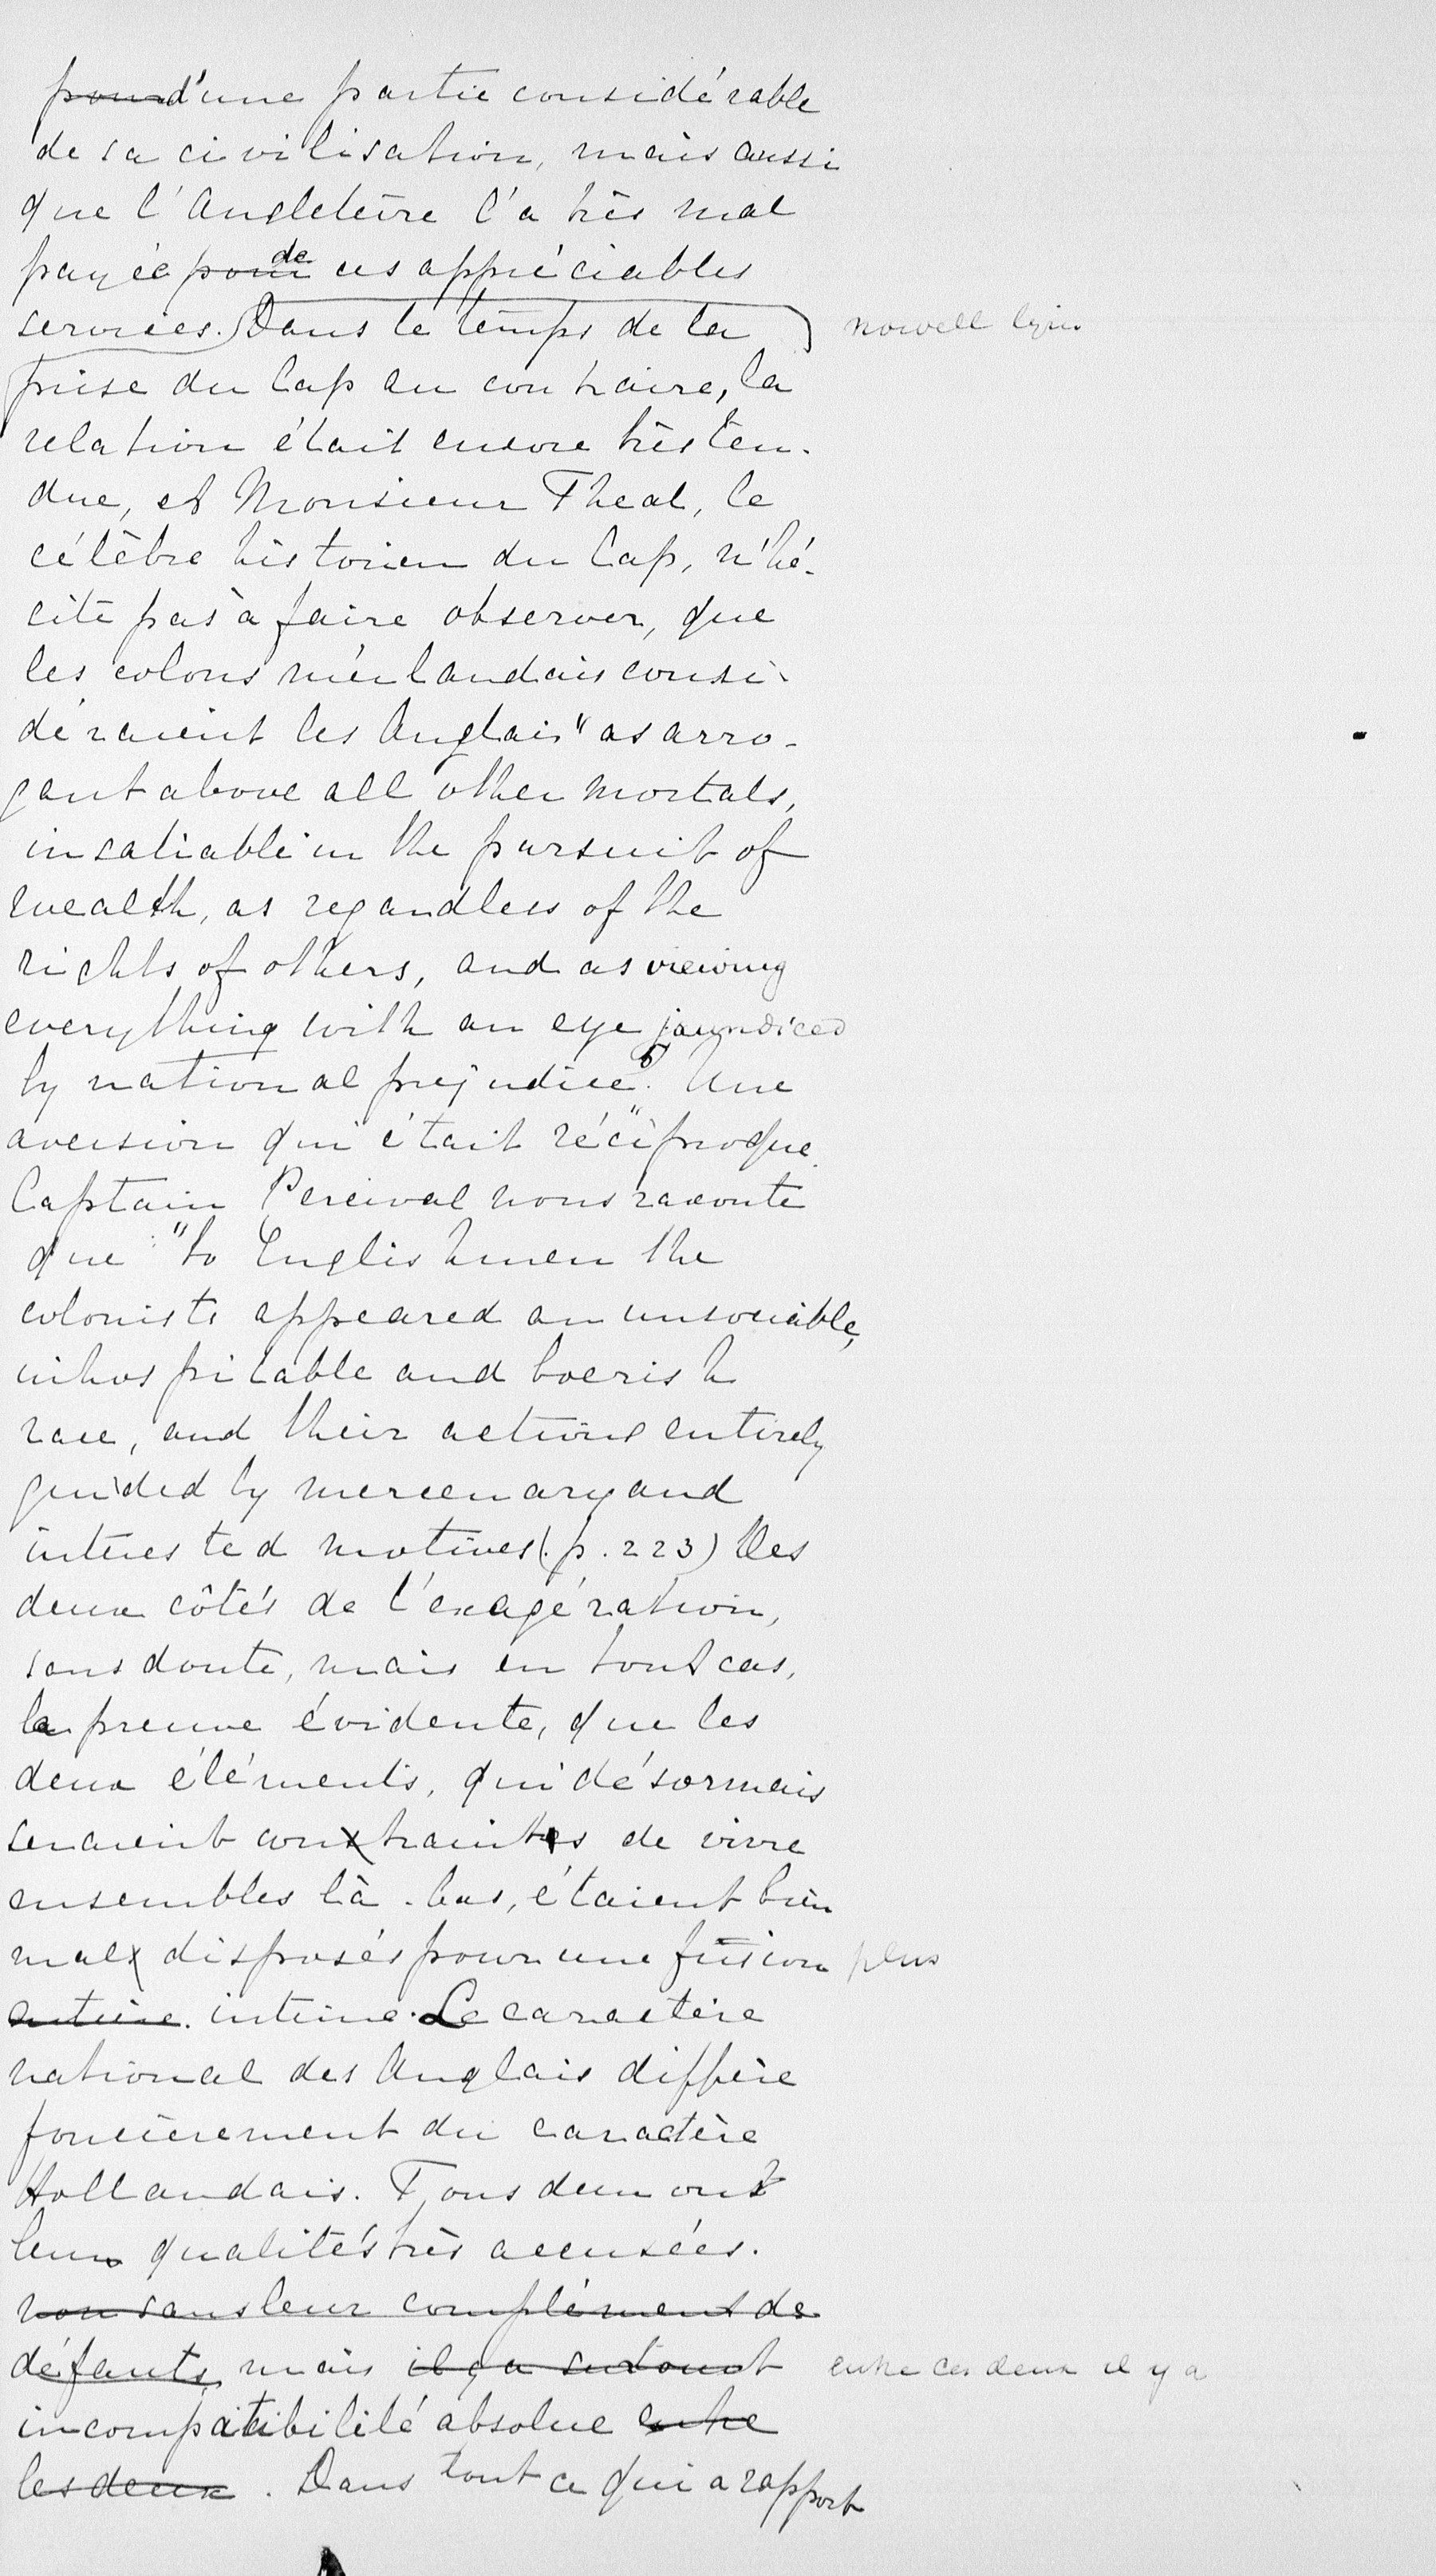 pour d'une partie considérable
de sa civilisation, mais aussi
que l'Angleterre l'a très mal
payée pour de ces appréciables
services. Dans le temps de la
prise du Cap au contraire, la
relation était encore très ten-
due, et Monsieur Theal, le
célèbre historien du Cap, n'hé-
cite pas à faire observer, que
les colons néerlandais consi-
déraient les Anglais "as arro-
gant above all other mortals,
insatiable in the pursuit of
wealth, as regardless of the
rights of others, and as viewing
everything with an eye jaundiced
by national prejudice". Une
aversion qui était réciproque.
Captain Percival nous raconte
que "to Englishmen the
colonists appeared an unsociable,
inhospitable and boerish
race, and their actions entirely
guided by mercenary and
interested motives (p. 223) Des
deux côtés de l'exagération,
sans doute, mais en tout cas,
la preuve évidente, que les
deux éléments, qui désormais
seraient contraints de vivre
ensembles là-bas, étaient bien
mal disposés pour une fusion plus
entière. intime. Le caractère
national des Anglais diffère
foncièrement du caractère
Hollandais. Tous deux ont
leurs qualités très accusées.
non sans leur complément de
défauts, mais il y a surtout entre ces deux il y a
incompatibilité absolue entre
les deux. Dans tout ce qui a rapport